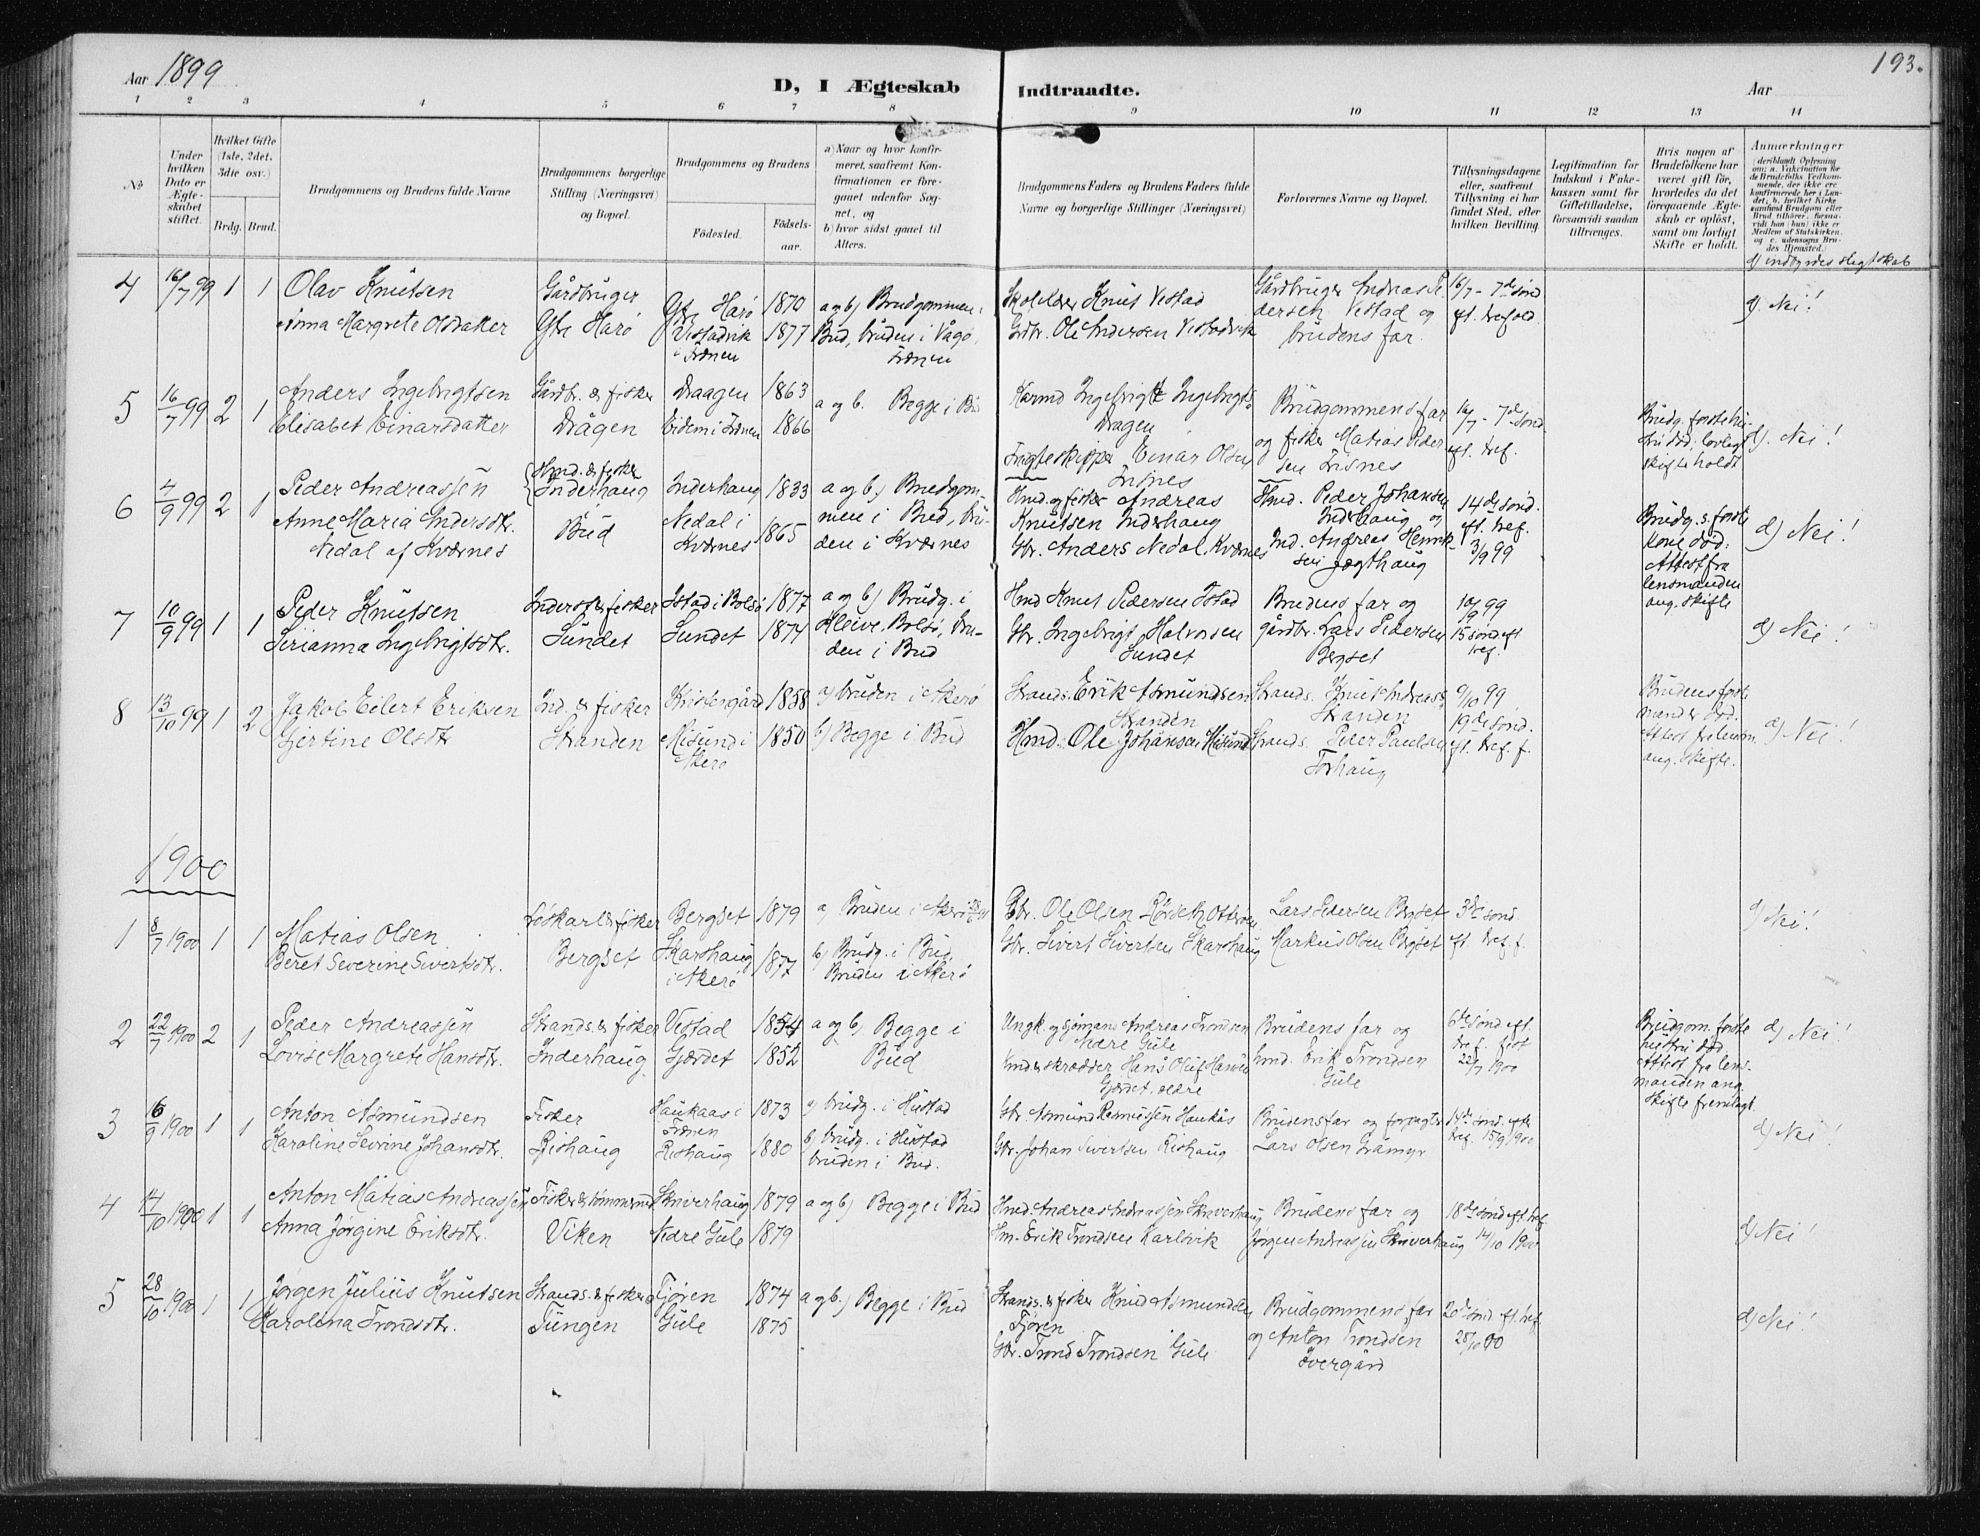 Aar 1899
193.
D, I Ægteskab Indtraadte.
Aar
1 2 3 4 5 6 7 8 9 10 11 12 13 14
No
Under hvilken Dato er Ægteskabet stiftet.
Hvilket Gifte (1ste, 2det, 3die osv.)
Brdg. Brud.
Brudgommens og Brudens fulde Navne
Brudgommens borgerlige Stilling (Næringsvei) og Bopæl.
Brudgommens og Brudens
Fødested.
Fødselsaar.
a) Naar og hvor konfirmeret, saafremt Konfirmationen er foregaaet udenfor Sognet, og
b) hvor sidst gaaet til Alters.
Brudgommens Faders og Brudens Faders fulde Navne og borgerlige Stillinger (Næringsvei)
Forlovernes Navne og Bopæl.
Tillysningsdagene eller, saafremt Tillysning ei har fundet Sted, efter hvilken Bevilling.
Legitimation for Indskud i Enkekassen samt for Giftetilladelse, forsaavidt saadan tiltrænges.
Hvis nogen af Brudefolkene har været gift før, hvorledes da det foregaaende Ægteskab er opløst, samt om lovligt Skifte er holdt.
Anmærkninger
d) indbyrdes slegtskab
4 16/7 99 1 1 Olav Knutsen
Anna Margrete Olsdatter
Gårdbruger
Ytre Harø
Ytre Harø 1870
Vestadvik i Frænen 1877
a og b) Brudgommen i Bud, bruden i Vågø, Frænen
Knut Vestad
Grdbr. Ole Andersen Vestadvik
Gårdbruger Andreas Pedersen Vestad og brudens far.
16/7 - 7de sønd. eft. trefold.
d) Nei!
5 16/7 99 2 1 Anders Ingebrigtsen
Elisabet Einarsdatter
Gårdbr. & fisker
Drågen
Draagen 1863
Eidem i Frænen 1866
a og b. Begge i Bud
Ingebrigt Ingebrigts. Dragen
Jægteskipper Einar Olsen
Brudgommens far
og fisker Matias Pedersen
16/7 - 7de sønd. eft. tref.
Brudg. første hustru død, lovligt skifte holdt
d). Nei!
6 4/9 99 2 1 Peder Andreassen
Anne Maria Andersdtr.
Nedal af Kværnes
Hmd. & fisker
Inderhaug
Bud
Inderhaug 1833
Nedal i Kværnes 1865
a og b) Brudgommen i Bud, bruden i Kværnes
Hmd. og fisker Andreas Knutsen Inderhaug
Gbr. Anders Nedal, Kværnes
Hmd. Peder Johansen Inderhaug og
Ind. Andreas Henriksen Jægthaug
14de sønd. eft. tref. 3/9 99
Brudg.s første kone død. Attest fra lensmanden ang. skifte
d) Nei!
7 10/9 99 1 1 Peder Knutsen
Sirianna Ingebrigtsdtr.
Inderst & fisker
Sundet
Istad i Bolsø 1877
Sundet 1874
a og b) Brudg. i Kleive, Bolsø, bruden i Bud
Hmd Knut Pedersen Istad
Gbr. Ingebrigt Halvorsen Sundet
Brudens far og
gårdbr. Lars Pedersen Bergset
10/9 99
15 sønd eft tref.
d) Nei!
8 13/10 99 1 2 Jakob Eilert Eriksen
Gjertine Olsdtr
Ind. & fisker
Stranden
Kristengård 1858
Misund i Akerø 1850
a) bruden i Akerø
b) Begge i Bud
Strands. Erik Asmundsen Stranden
Hmd. Ole Johansen Misund
Strands. Knut Andreass. Stranden
Strands. Peder Paulsen Torhaug
9/10 99
19de sønd. eft. tref. f.
Brudens første mand er død. Attest fra lensm. ang. skifte.
d) Nei!
1900
1 8/7 1900 1 1 Matias Olsen
Beret Severine Sivertsdtr.
Løskarl & fisker
Bergset
Bergset 1879
Skarshaug i Akerø 1877
a) Bruden i Akerø
b) Brudg. i Bud, Bruden i Akerø
Gbr. Ole Olsen Rørset, Otterøen
Gbr. Sivert Sivertsen Skarshaug
Lars Pedersen Bergset
Markus Olsen Bergset
3die sønd. eft. tref. f.
d) Nei!
2 22/7 1900 2 1 Peder Andreassen
Lovise Margrete Hansdtr.
Strands. & fisker
Inderhaug
Vestad 1854
Gjærdet 1852
a og b) Begge i Bud
Ungk. og sjømans Andreas Trondsen Nedre Gule
Hmd & skrædder Hans Oluf Hansen Gjærdet, nedre
Brudens far og
hmd. Erik Trondsen Gule
6te sønd. eft. tref. fest 22/7 1900
Brudgom. første hustru død. Attest fra lensmanden ang. skifte fremlagt
d) Nei!
3 6/9 1900 1 1 Anton Asmundsen
Karoline Sevrine Johansdtr.
Fisker
Rishaug
Haukaas i Frænen 1873
Rishaug 1880
a) brudg. i Hustad
b) brudg. i Hustad bruden i Bud.
Gbr. Asmund Rasmussen Haukås
Gbr. Johan Sivertsen Rishaug
Brudens far og forpagter
Lars Olsen
14de sønd. efter tref. 15/9 1900
d) Nei!
4 14/10 1900 1 1 Anton Matias Andreassen
Anna Jørgine Eriksdtr.
Fisker & tømmermd
Viken
Skriverhaug 1879
Nedre Gule 1879
a og b) Begge i Bud
Hmd. Andreas Andreassen Skriverhaug
Hm. Erik Trondsen Karlsvik
Brudens far og
Jørgen Andreassen Skriverhaug
18de sønd eft. tref. 14/10 1900
d) Nei!
5 28/10 1900 1 1 Jørgen Julius Knutsen
Karolina Trondsdtr.
Strands. & fisker
Tungen
Tjøren 1874
Gule 1875
a og b.) Begge i Bud
Strands. & fisker Knud Asmundsen Tjøren
Gbr. Trond Trondsen Gule
Brudgommens far
og Anton Trondsen Øvergård
20de sønd eft. tref. 28/10 00
d) Nei!